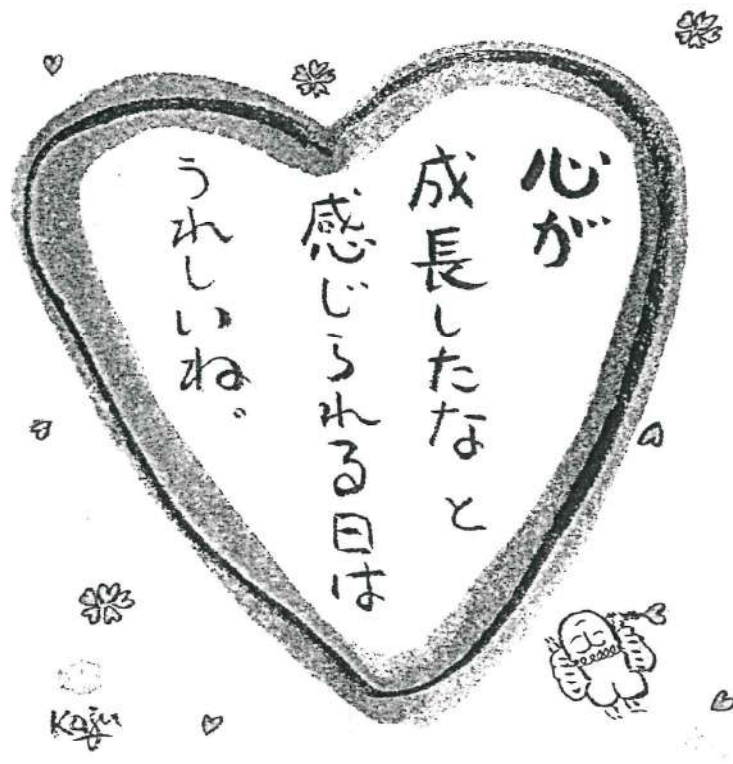 心が
成長したなと
感じられる日は
うれしいね。
Kaju